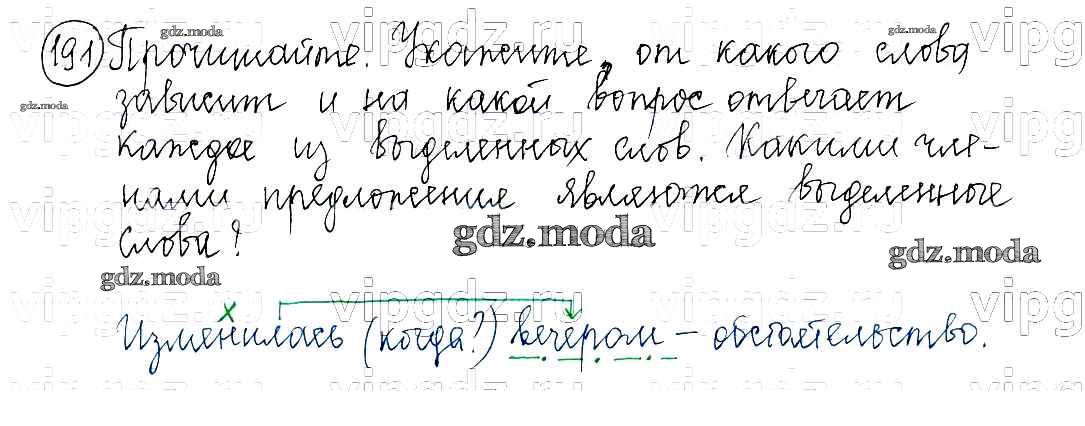 191 Прочитайте. Укажите, от какого слова
зависит и на какой вопрос отвечает
каждое из выделенных слов. Какими чле-
нами предложения являются выделенные
слова?
х
Изменилась (когда?) вечером – обстоятельство.
gdz.moda
gdz.moda
gdz.moda
gdz.moda
gdz.moda
gdz.moda
gdz.moda
vipgdz.ru